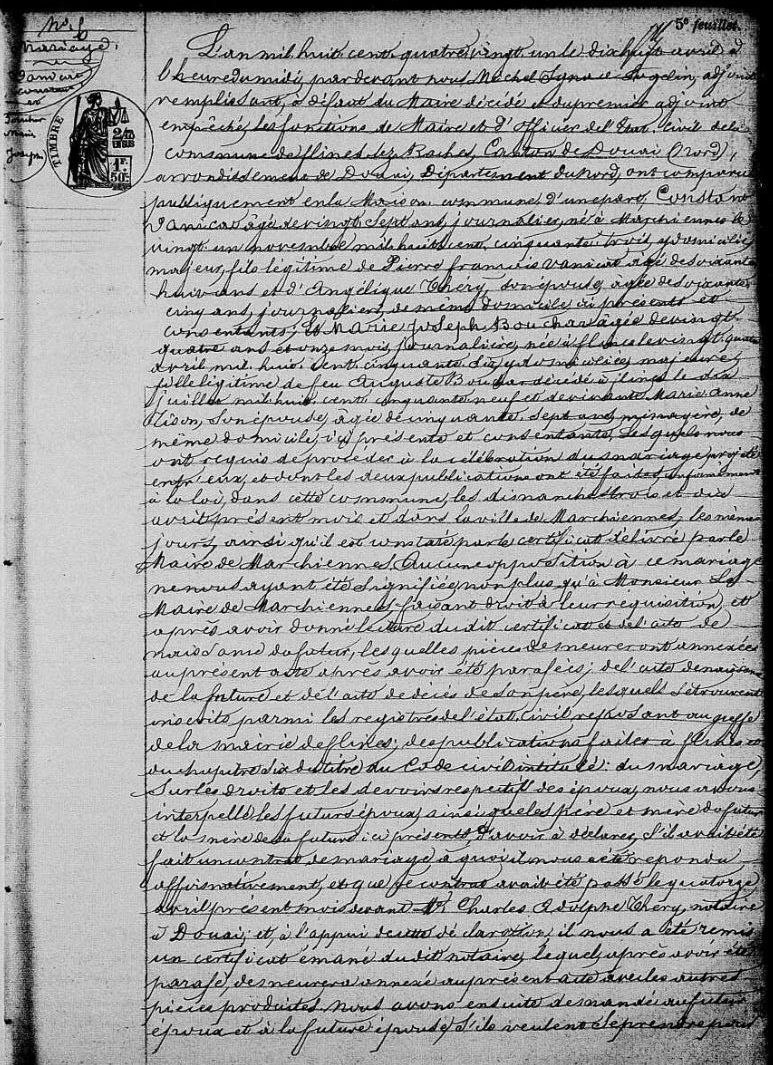 5e feuillet
No. 6
Mariage
Vanicat
Constant
et
Bouchar
Marie
Joseph
TIMBRE
L'an mil huit cent quatre vingt un le dix huit avril à
l'heure du midi, par devant nous Michel adjoint
remplissant, à défaut du Maire décédé et du premier adjoint
empêché, les fonctions de Maire et d'officier de l'État-civil de la
commune de flines lez Raches, Canton de Douai (Nord),
arrondissement de Douai, Département du Nord, ont comparu
publiquement en la Maison commune d'une part, Constant
Vanicat âgé de vingt sept ans, journalier, né à Marchiennes le
vingt un novembre mil huit cent cinquante trois, y domicilié
majeur, fils légitime de Pierre françois Vanicat âgé de soixante
huit ans et d'Angélique Théry, son épouse, agée de soixante
cinq ans, journaliers, de même domicile ici présents et
consentants; Et Marie Joseph Bouchar âgée de vingt
quatre ans et onze mois, journalière, née à flines le vingt quatre
avril mil huit cent cinquante six y domiciliée, majeure,
fille légitime de feu Auguste Bouchar décédé à flines le dix
juillet mil huit cent cinquante neuf et de vivante Marie Anne
son épouse, âgée de cinquante sept ans, ménagère, de
même domicile, ici présente et consentante, Lesquels nous
ont requis de procéder à la célébration du mariage projeté
entr'eux, et dont les deux publications ont été faites conformément
à la loi, dans cette commune, les dimanches trois et dix
avril présent mois et dans la ville de Marchiennes, les mêmes
jours, ainsi qu'il est constaté par le certificat délivré par le
Maire de Marchiennes. Aucune opposition à ce mariage
ne nous ayant été signifiée, non plus qu'à Monsieur Le
Maire de Marchiennes, faisant droit à leur requisition, et
après avoir donné lecture du dit certificat et de l'acte de
naissance du futur, lesquelles pièces demeureront annexées
au présent acte après avoir été parafées; de l'acte de naissance
de la future et de l'acte de décès de son père, lesquels se trouvent
inscrits parmi les registres de l'état civil reposant au greffe
de la mairie de flines; des publications faites à flines et
du chapitre six du titre du Code civil intitulé: du mariage,
Sur les droits et les devoirs respectifs des époux, nous avons
interpellé les futurs époux, ainsi que les père et mère du futur
et la mère de la future ici présents, d'avoir à déclarer, s'il avait été
fait un contrat de mariage à quoi il nous a été répondu
affirmativement, et que ce contrat avait été passé le quatorze
avril présent mois devant Mr Charles Adolphe Théry, notaire
à Douai; et, à l'appui de cette déclaration, il nous a été remis
un certificat émané du dit notaire, lequel, après avoir été
parafé, demeurera annexé au présent acte avec les autres
pièces produites. nous avons ensuite demandé au futur
époux et à la future épouse, s'ils veulent se prendre pour